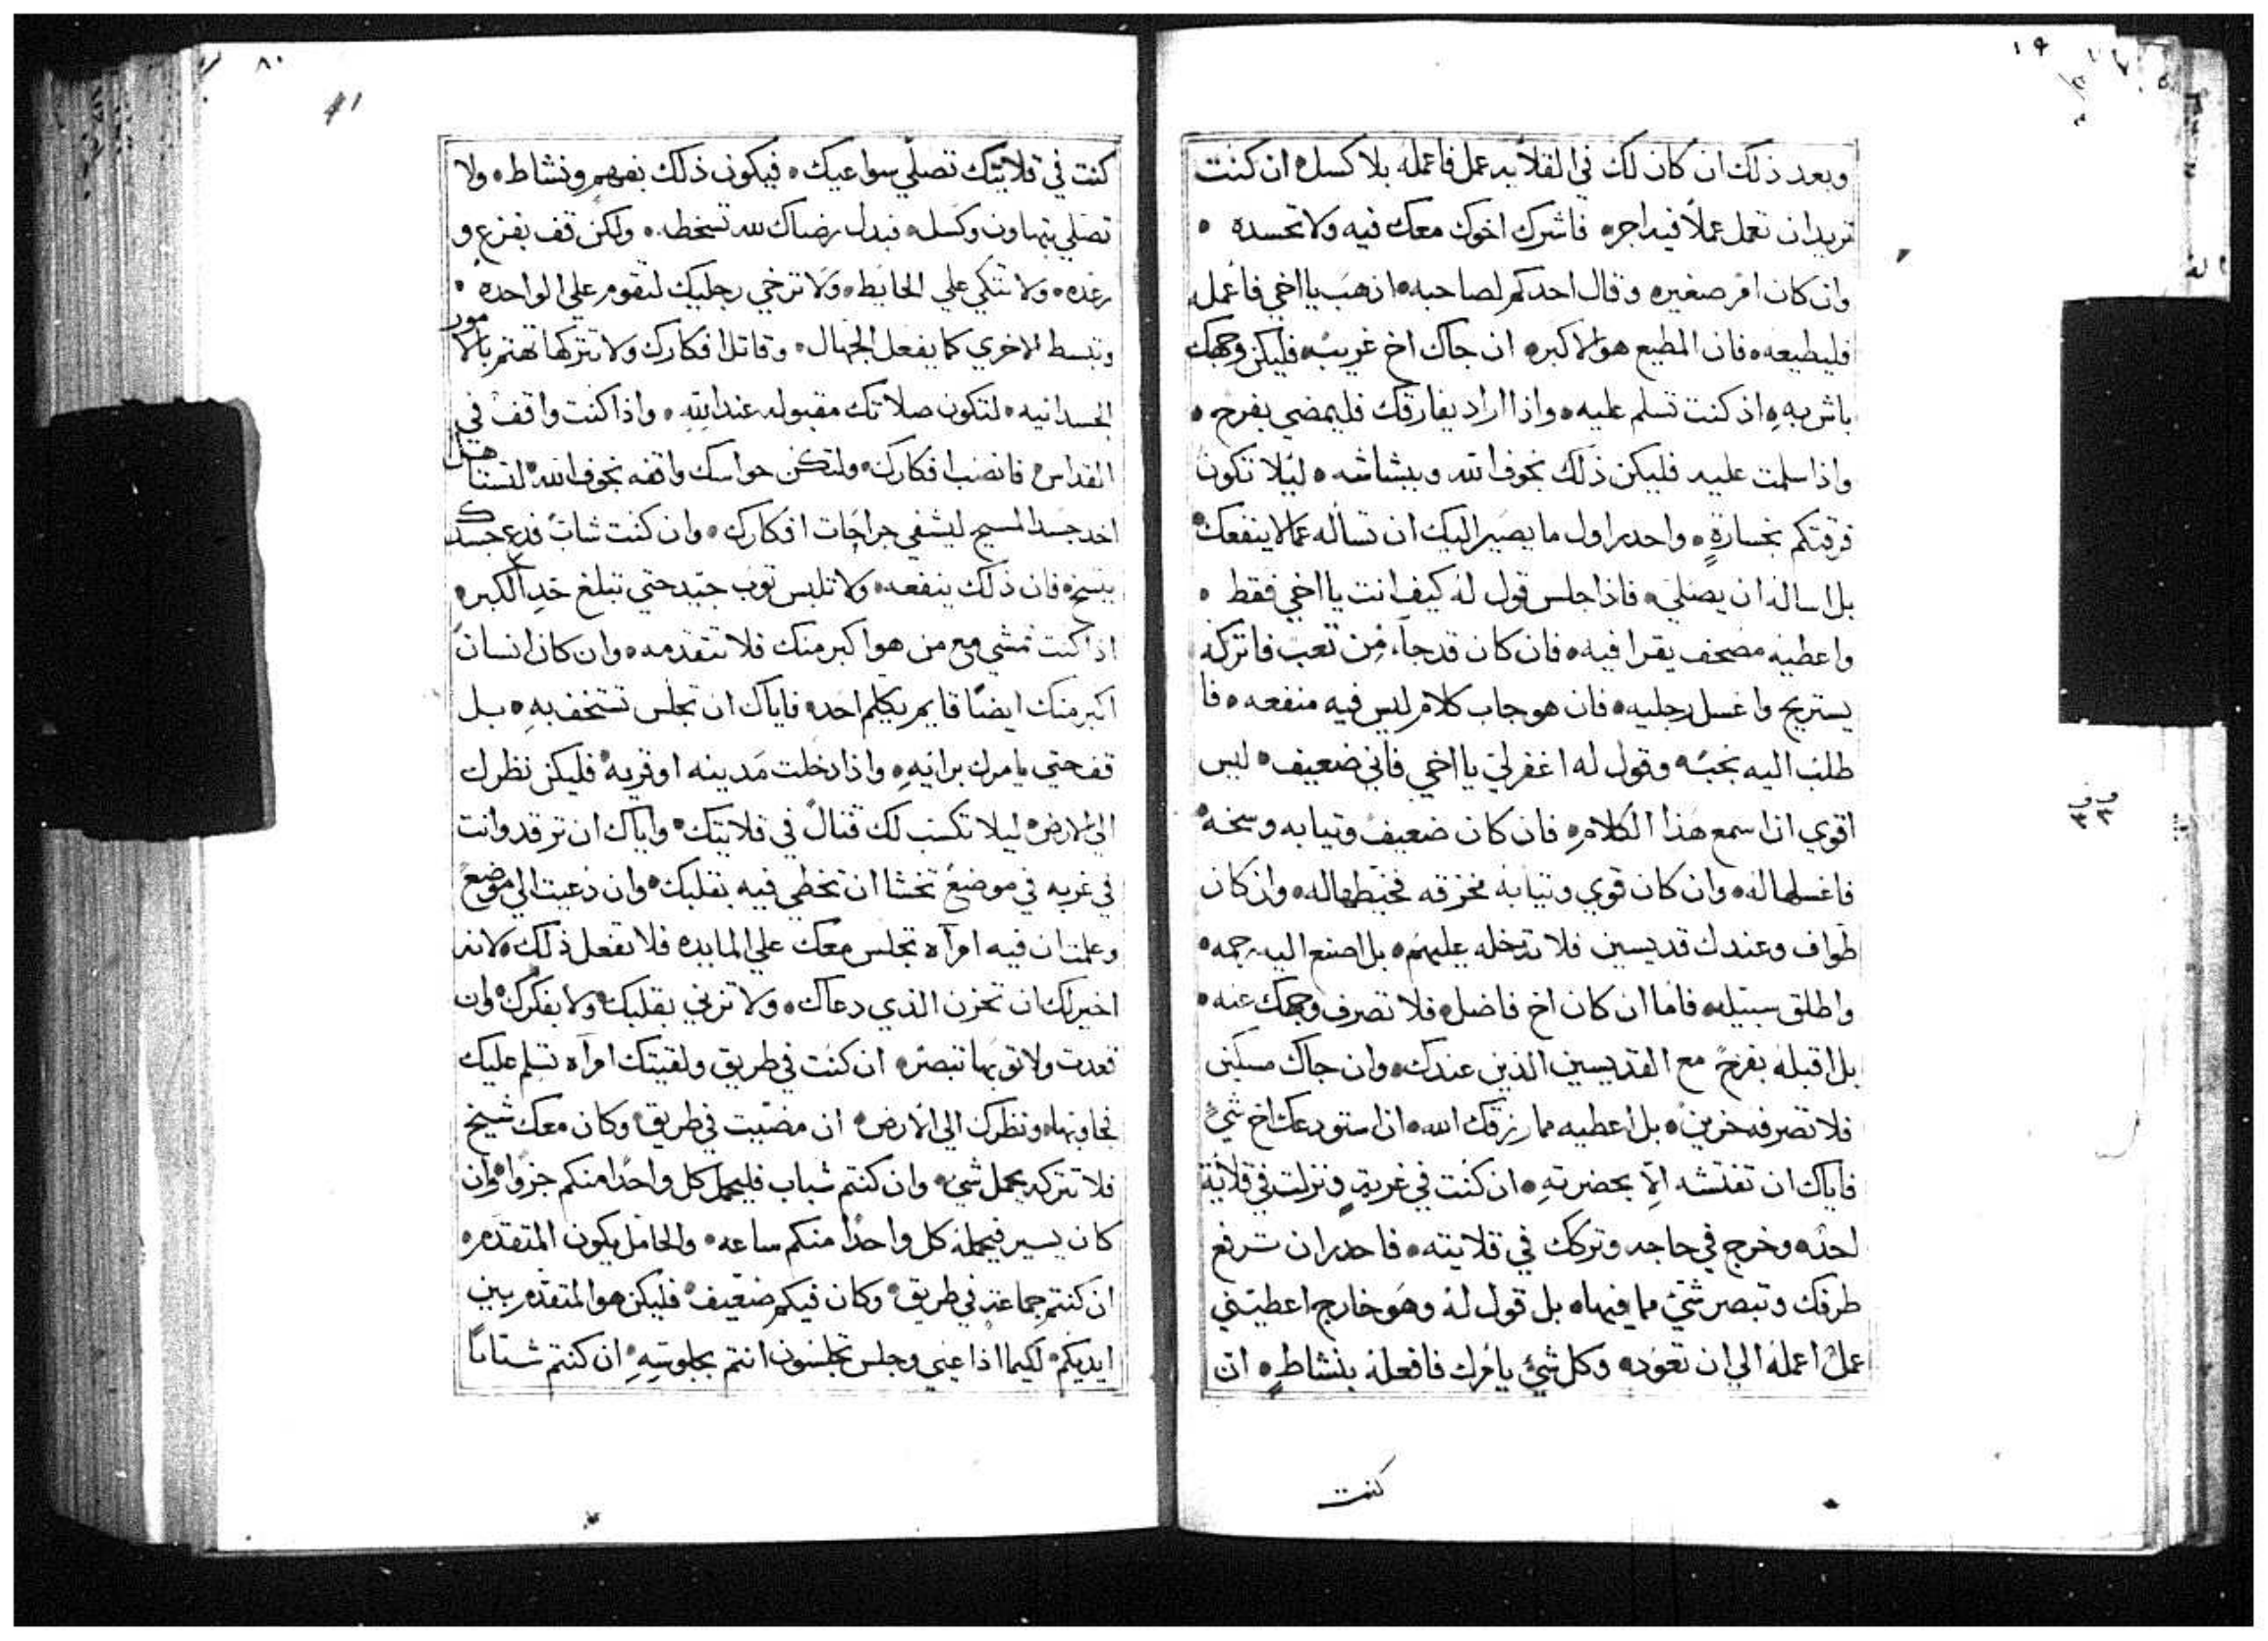 وبعد ذلك ان كان لك في القلايه عمل فاعمله بلا كسل ان كنت
تريد ان تعمل عملًا فيه اجر فاشرك اخوك معك فيه ولا تحسده
وان كان امر صغير وقال احدكم لصاحبه اذهب يا اخي فاعمله
فليطيعه فان المطيع هو الاكبر ان جاك اخ غريب فليكن وجهك
باش به اذ كنت تسلم عليه واذا اراد يفارقك فليمضي بفرح
واذا سلمت عليه فليكن ذلك بخوف الله وببشاشه ليلا تكون
فرقتكم بخسارةٍ واحدر اول ما يصير اليك ان تساله عما لا ينفعك
بل اساله ان يصلي فاذا جلس قول له كيف انت يا اخي فقط
واعطيه مصحف يقرا فيه فان كان قد جاء من تعب فاتركه
يستريح واغسل رجليه فان هو جاب كلام ليس فيه منفعه فا
طلب اليه بمحبه وقول له اغفر لي يا اخي فاني ضعيف ليس
اقوي ان اسمع هذا الكلام فان كان ضعيف وتيابه وسخه
فاغسلها له وان كان قوي وتيابه مخزقه فخيطها له وان كان
طواف وعندك قديسين فلا تدخله عليهم بل اصنع اليه رحمه
واطلق سبيله فاما ان كان اخ فاضل فلا تصرف وجهك عنه
بل اقبله بفرح مع القديسين الذين عندك وان جاك مسكين
فلا تصرفه حزين بل اعطيه مما رزقك الله ان استودعك اخ شيً
فاياك ان تفتشه الا بحضرته ان كنت في غربةٍ ونزلت في قلاية
احد وخرج في حاجه وتركك في قلايته فاحدر ان ترفع
طرفك وتبصر شي مما فيها بل قول له وهو خارج اعطيني
عمل اعمله الي ان تعود وكل شي يامرك فافعله بنشاطٍ ان
كنت
٨٠
كنت في قلايتك تصلي سواعيك فيكون ذلك بفهم ونشاط ولا
تصلي بتهاون وكسل فبدل رضاك لله تسخطه ولكن قف بفزع و
رعده ولا تتكي علي الحايط ولا ترخي رجليك لتقوم علي الواحده
وتبسط الاخري كما يفعل الجهال وقاتل افكارك ولا تتركها تهتم بالامور
الجسدانيه لتكون صلاتك مقبوله عند الله واذا كنت واقف في
القداس فانصب افكارك ولتكن حواسك واقفه بخوف الله لتستاهل
اخد جسد المسيح ليشفي جراحات افكارك وان كنت شاب فدع جسدك
يتسخ فان ذلك ينفعه ولا تلبس توب جيد حتي تبلغ حد الكبر
اذا كنت تمشي مع من هو اكبر منك فلا تتقدمه وان كان انسان
اكبر منك ايضًا قايم يكلم احد فاياك ان تجلس تستخف به بل
قف حتي يامرك برايه واذا دخلت مدينه او قريه فليكن نظرك
الي الارض ليلا تكسب لك قتال في قلايتك واياك ان ترقد وانت
في غربه في موضع تخشا ان تخطي فيه بقلبك وان دعيت الي موضع
وعلمت ان فيه امرآه تجلس معك علي المايده فلا تفعل ذلك لانه
اخير لك ان تحزن الذي دعاك ولا تزني بقلبك ولا بفكرك وان
قعدت ولا توبها تبصر ان كنت في طريق ولقيتك امرآه تسلم عليك
فجاوبها ونظرك الي الارض ان مضيت في طريق وكان معك شيخ
فلا تتركه يحمل شي وان كنتم شباب فليحمل كل واحدًا منكم جزوا وان
كان يسير فيحمله كل واحدًا منكم ساعه والحامل يكون المتقدم
ان كنتم جماعه في طريق وكان فيكم ضعيف فليكن هو المتقدم بين
ايديكم لكيما اذا عيي وجلس تجلسون انتم بجلوسه ان كنتم شبابًا